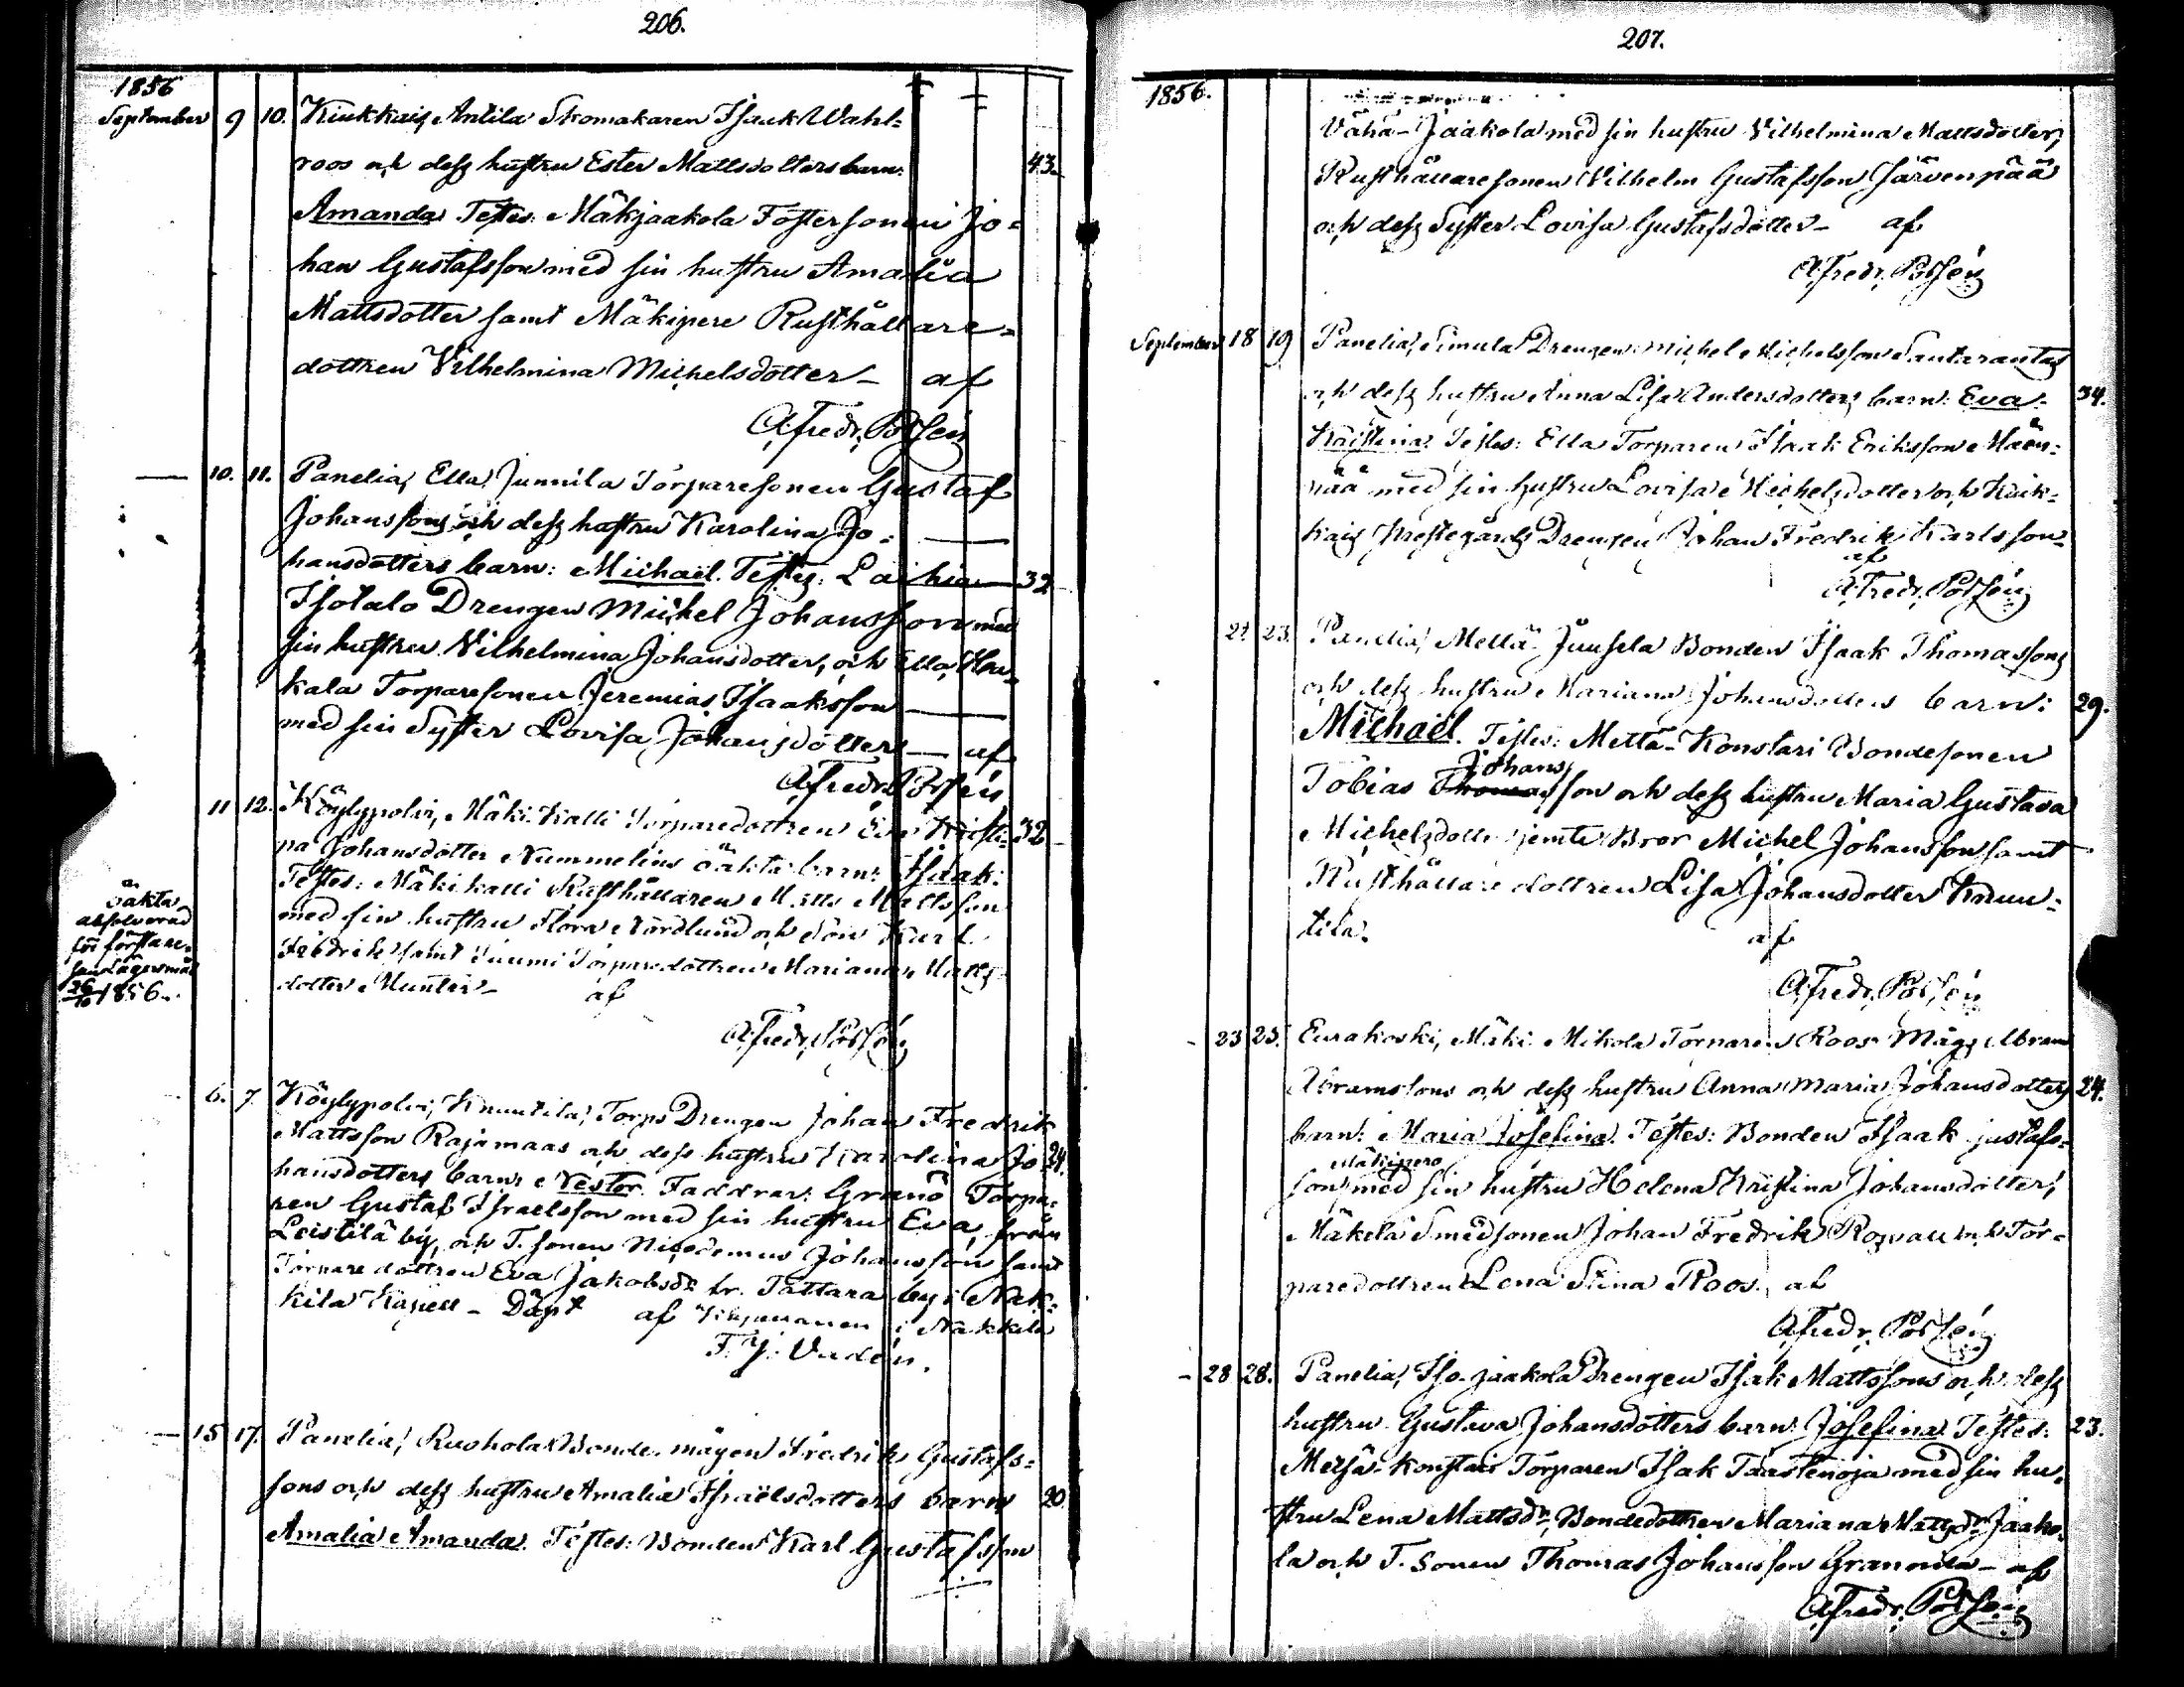 206.
1856
September 9 10. Kiukkais, Antila Skomakaren Isaak Wahl=
roos och dess hustru Ester Mattsdotters barn: 43.
Amanda Testes: Mäkjaakola Fostersonen Jo=
han Gustafsson med sin hustru Amalia
Mattsdotter samt Mäkipere Rusthållare=
dottren Vilhelmina Michelsdotter – af
A. Fredr. Polsén
— 10. 11. Panelia, Ella Junnila Torparesonen Gustaf
Johanssons och dess hustru Karolina Jo=
hansdotters barn: Michaël. Testes: Laihia 32
Isotalo Drengen Michel Johansson med
sin hustru Vilhelmina Johansdotter, och Ella,
kala Torparesonen Jeremias Isaaksson
med sin Syster Lovisa Johansdotter — af
A. Fredr. Polsén
11 12. Köylypolvi, Mäki-Kalli Torparedottren Eva Kristi= 32
na Johansdotter Nummelins oäkta barn: Isaak.
Testes: Mäkikalli Rusthållaren Matts Mattsson
med sin hustru Flora Nordlund och Son Karl
Fredrik samt Torparedottren Mariana Matts=
dotter Munter – af
A. Fredr. Polsén
oäkta
absolverad
för första re=
san Lägersmål
26/10 1856.
6. 7 Köylypolvi, Knuutila, Torps Drengen Johan Fredrik
Mattsson Rajamaas och dess hustru Karolina Jo= 24.
hansdotters barn: Nestor. Faddrar: Granö Torpa=
ren Gustaf Israelsson med sin hustru Eva, från
Leistilä by, och T. sonen Nicodemus Johansson samt
Torparedottren Eva Jakobsdr fr. Tattara by i Nak=
kila Kapell – Döpt af Kapellanen i Nakkila
F. J. Vadén.
— 15 17. Panelia, Ruohola Bonde mågen Fredrik Gustafs=
sons och dess hustru Amalia Israëlsdotters barn 20
Amalia Amanda. Testes: Bonden Karl Gustafsson
207.
1856.
Vähä-Jaakola med sin hustru Vilhelmina Mattsdotter,
Rusthållaresonen Vilhelm Gustafsson Järvenpää
och dess Syster Lovisa Gustafsdotter – af
A. Fredr. Polsén
September 18 19 Panelia, Simula Drengen Michel Michelsson Santarantas
och dess hustru Anna Lisa Andersdotters barn: Eva 34.
Kristina. Testes: Ella Torparen Isaak Eriksson Mäen=
pää med sin hustru Lovisa Michelsdotter och Kiuk=
kais Prestegårds Drengen Johan Fredrik Karlsson
af
A. Fredr. Polsén
21 23. Panelia, Mellä-Juusela Bonden Isaak Thomassons
och dess hustru Mariana Johansdotters barn: 29.
Michaël. Testes: Mettä-Konstari Bondesonen
Johans
Tobias Thomasson och dess hustru Maria Gustava
Michelsdotter jemte Bror Michel Johansson samt
Rusthållare dottren Lisa Johansdotter Knuu=
tila. af
A. Fredr. Polsén
- 23 25. Eurakoski, Mäki Mikola Torparen Roos Mågs Abram
Abramssons och dess hustru Anna Maria Johansdotters 24.
barn: Maria Josefina. Testes: Bonden Isaak Gustafs=
Mäkipere
son med sin hustru Helena Kristina Johansdotter,
Mäkelä Smedsonen Johan Fredrik Rosvall och Tor=
paredottren Lena Stina Roos. af
A. Fredr. Polsén
- 28 28. Panelia, Iso-jaakola Drengen Isak Mattssons och dess
hustru Gustava Johansdotters barn: Josefina. Testes: 23.
Metsä-konstari Torparen Isak Taastenoja med sin hu=
stru Lena Mattsdr, Bondedottren Mariana Mattsdr Jaako=
la och T. sonen Thomas Johansson – af
A. Fredr. Polsén